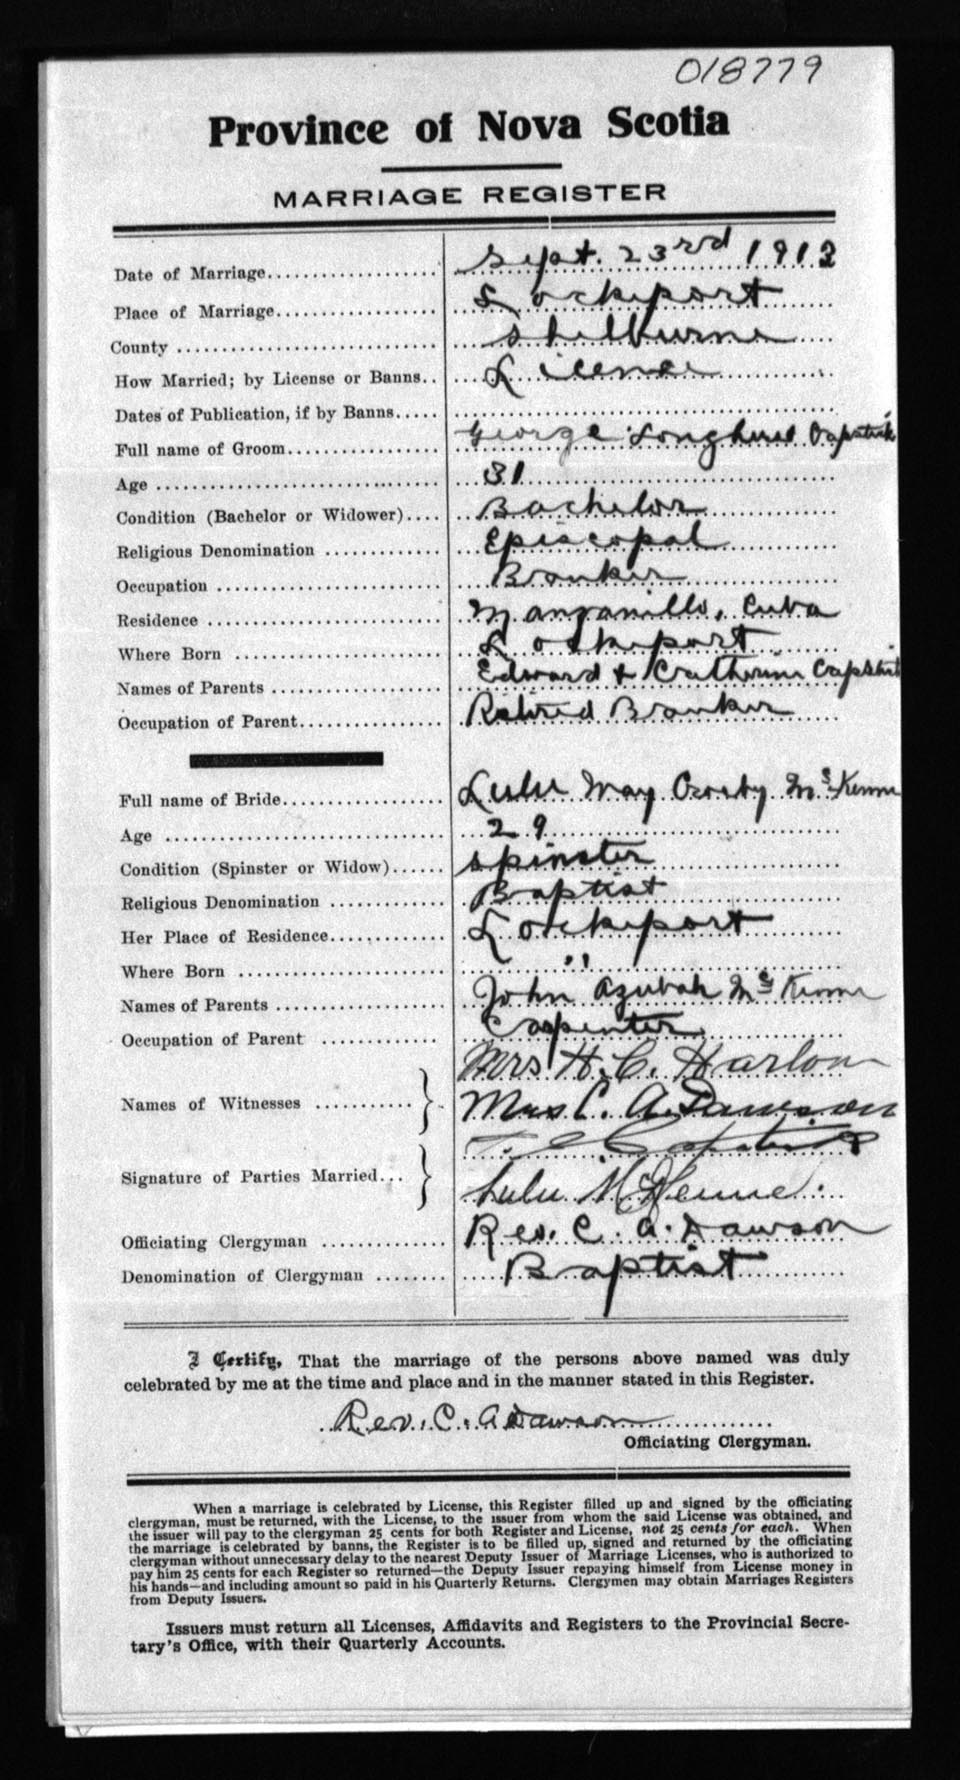 018779
Province of Nova Scotia
MARRIAGE REGISTER
Date of Marriage Sept. 23rd 1913
Place of Marriage Lockeport
County Shelburne
How Married; by License or Banns Licence
Dates of Publication, if by Banns
Full name of Groom George Capstick
Age 31
Condition (Bachelor or Widower) Bachelor
Religious Denomination Episcopal
Occupation Banker
Residence Manzanillo, Cuba
Where Born Lockeport
Names of Parents Edward & Catherine
Occupation of Parent Retired Banker
Full name of Bride Lulu May Crosby
Age 29
Condition (Spinster or Widow) Spinster
Religious Denomination Baptist
Her Place of Residence Lockeport
Where Born "
Names of Parents John Azubah
Occupation of Parent Carpenter
Names of Witnesses Mrs H. C. Harlow
Mrs C. A. Dawson
Signature of Parties Married
Lulu
Officiating Clergyman Rev. C. A. Dawson
Denomination of Clergyman Baptist
I Certify, That the marriage of the persons above named was duly
celebrated by me at the time and place and in the manner stated in this Register.
Rev. C. A Dawson
Officiating Clergyman.
When a marriage is celebrated by License, this Register filled up and signed by the officiating
clergyman, must be returned, with the License, to the issuer from whom the said License was obtained, and
the issuer will pay to the clergyman 25 cents for both Register and License, not 25 cents for each. When
the marriage is celebrated by banns, the Register is to be filled up, signed and returned by the officiating
clergyman without unnecessary delay to the nearest Deputy Issuer of Marriage Licenses, who is authorized to
pay him 25 cents for each Register so returned—the Deputy Issuer repaying himself from License money in
his hands—and including amount so paid in his Quarterly Returns. Clergymen may obtain Marriages Registers
from Deputy Issuers.
Issuers must return all Licenses, Affidavits and Registers to the Provincial Secre-
tary's Office, with their Quarterly Accounts.